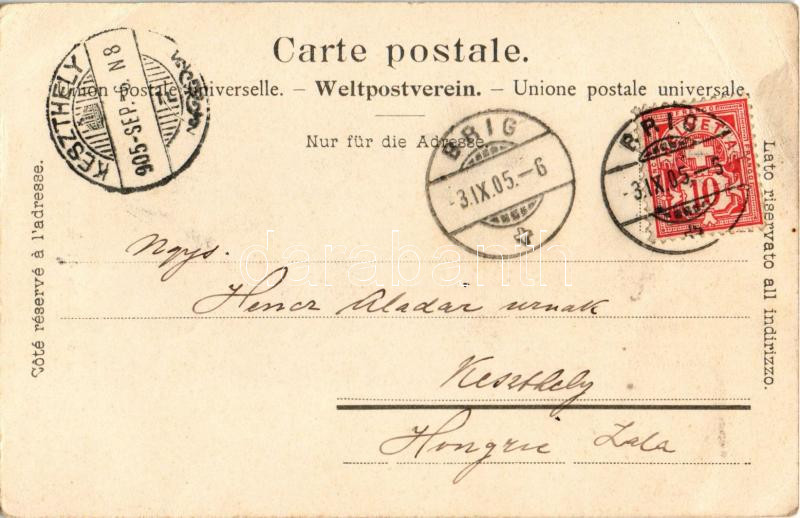 Carte postale.
Union postale universelle. – Weltpostverein. – Unione postale universale.
Nur für die Adresse.
Côté réservé à l'adresse.
Lato riservato all indirizzo.
KESZTHELY
905 SEP. N8
BRIG
-3.IX.05.-6
BRIG
-3.IX.05.-5
HELVETIA
10
darabanth
Ngys.
Hencz Aladar urnak
Keszthely
Hongrie Zala